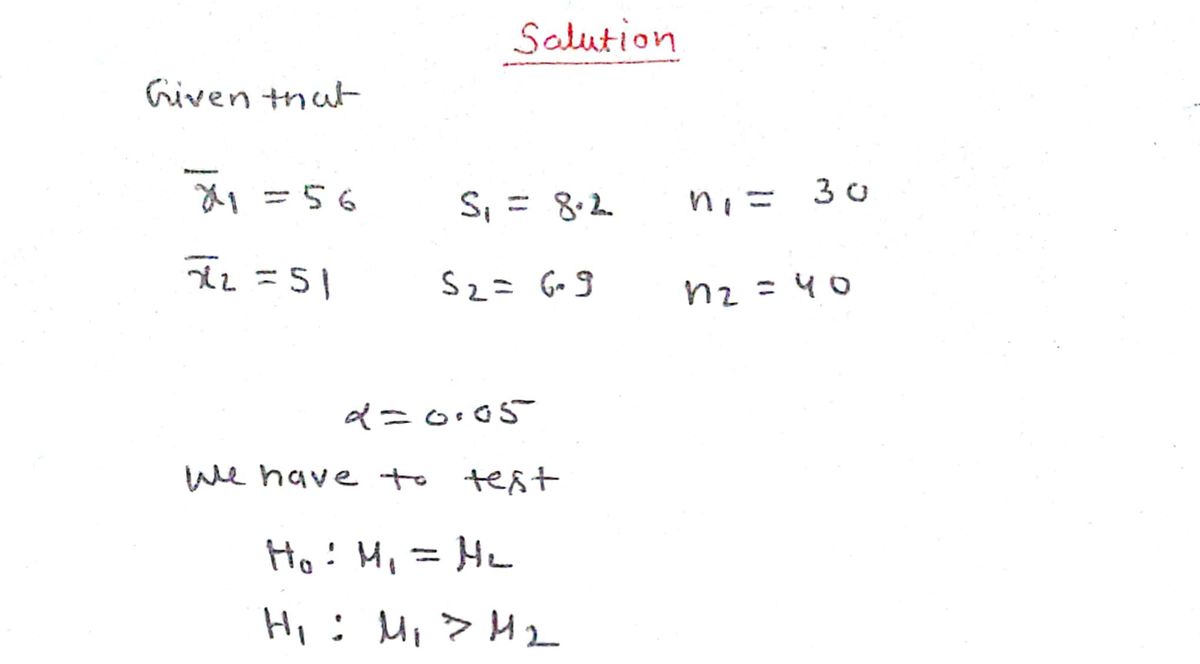 Salution
Given that
x̄₁ = 56 S₁ = 8.2 n₁ = 30
x̄₂ = 51 S₂ = 6.9 n₂ = 40
α = 0.05
We have to test
H₀ : μ₁ = μ₂
H₁ : μ₁ > μ₂